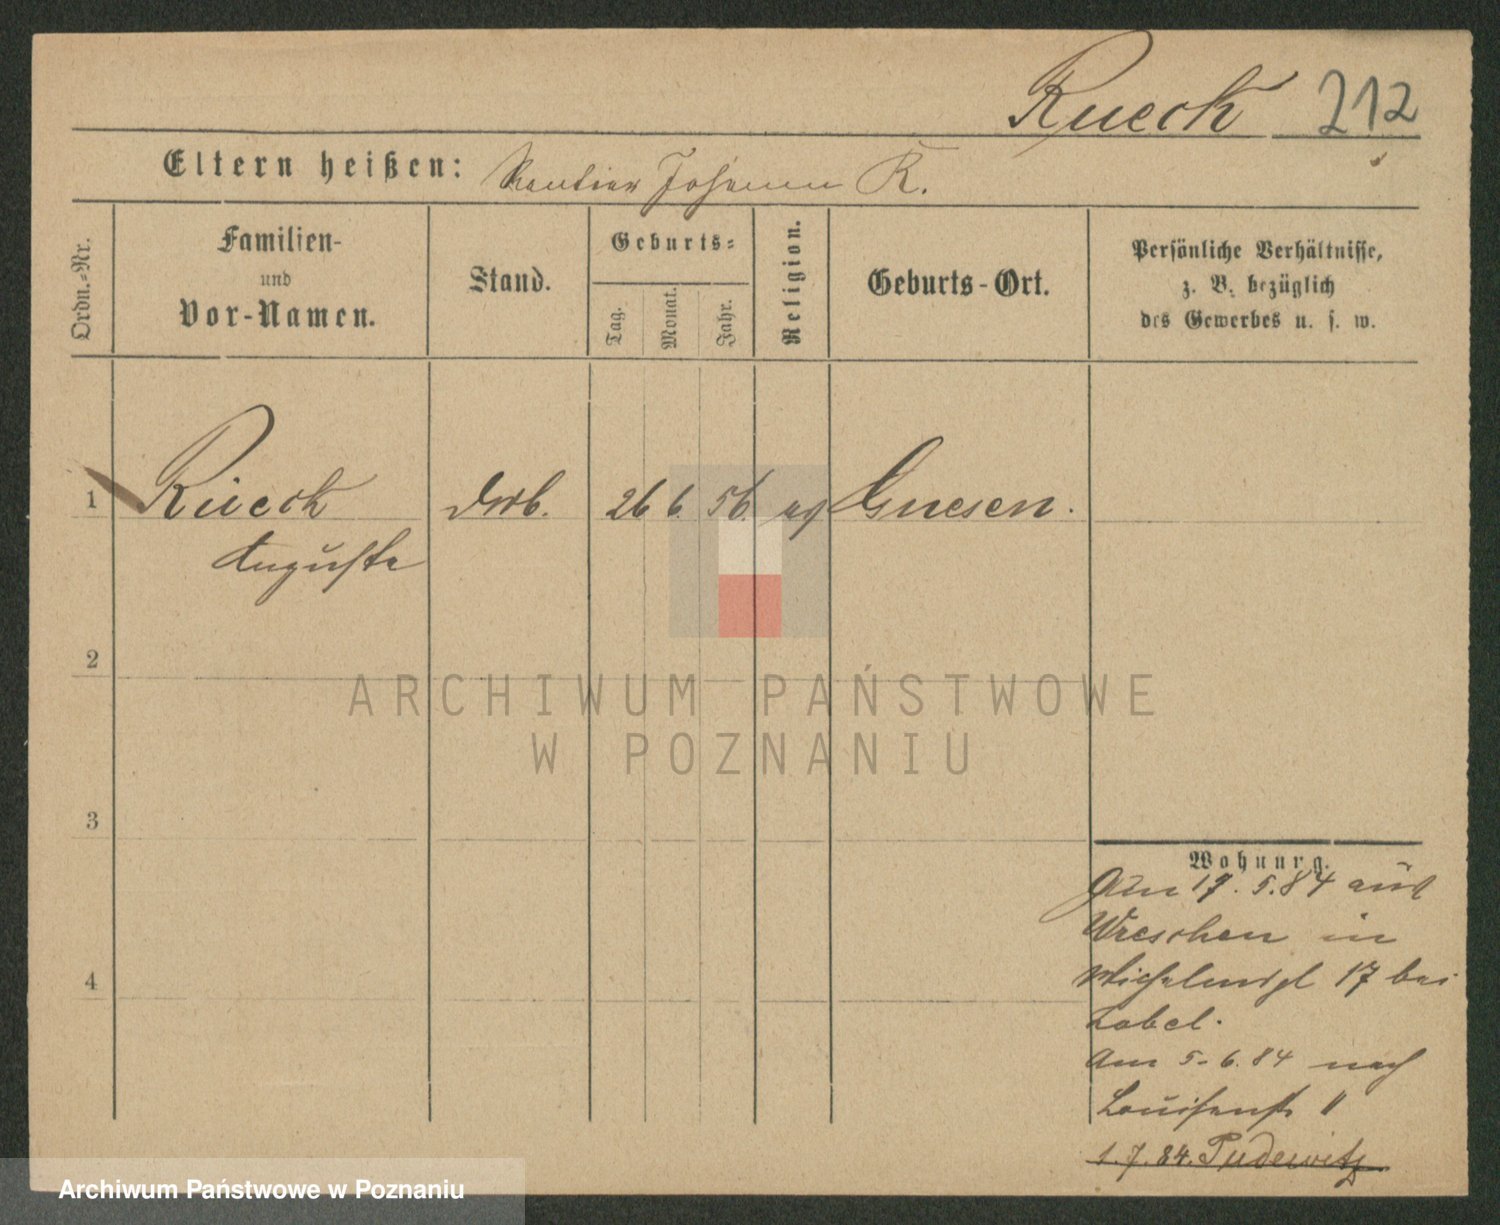 Rueck 212
Eltern heißen: Rentier Johann R.
Ordn.-Nr.
Familien-
und
Vor-Namen.
Stand.
Geburts-
Tag. Monat. Jahr.
Religion.
Geburts-Ort.
Persönliche Verhältnisse,
z. B. bezüglich
des Gewerbes u. s. w.
1 Rueck 26 6. 56. Gnesen.
Auguste
2
ARCHIWUM PAŃSTWOWE
W POZNANIU
3
Wohnung.
17. 5. 84 aus
Wreschen in
17 bei
Zabel.
Am 5-6.84 nach
Louisenstr 11
1.7.84. Pudewitz
4
Archiwum Państwowe w Poznaniu